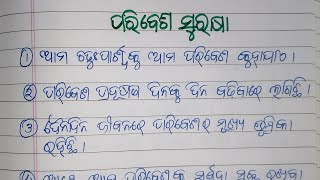 ପରିବେଶ ସୁରକ୍ଷା
① ଆମ ଚତୁଃପାର୍ଶ୍ଵକୁ ଆମ ପରିବେଶ କୁହାଯାଏ ।
② ପରିବେଶ ପ୍ରଦୂଷଣ ଦିନକୁ ଦିନ ବଢିବାରେ ଲାଗିଛି ।
③ ଦୈନନ୍ଦିନ ଜୀବନରେ ପରିବେଶର ମୁଖ୍ୟ ଭୂମିକା
ରହିଛି ।
ଆମ ପରିବେଶକୁ ସର୍ବଦା